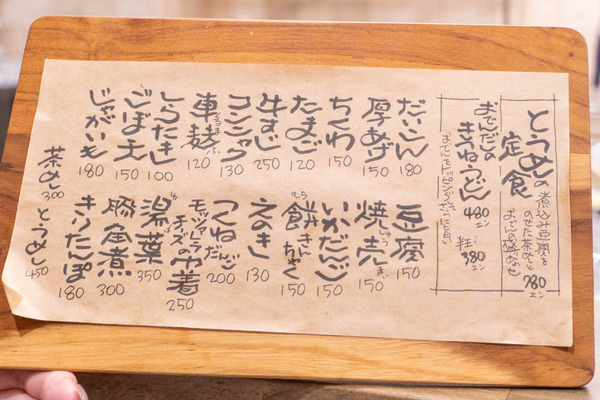 とうめしの定食
煮込み豆腐を
のせた茶めしと
おでんの盛合わせ
780エン
おでんだしの
きつねうどん
480エン
並
380エン
だいこん 180
厚あげ 150
ちくわ 150
たまご 120
牛すじ 250
コンニャク 130
車麩 くるまぶ 120
しらたき 100
ごぼ天 150
じゃがいも 180
豆腐 150
焼売 しゅうまい 150
いかだんご 150
餅きんちゃく もち 150
えのき 130
つくねだんご 200
モッツァレラチーズ巾着 250
湯葉 ゆば 350
豚角煮 300
きりたんぽ 180
茶めし 300
とうめし 450